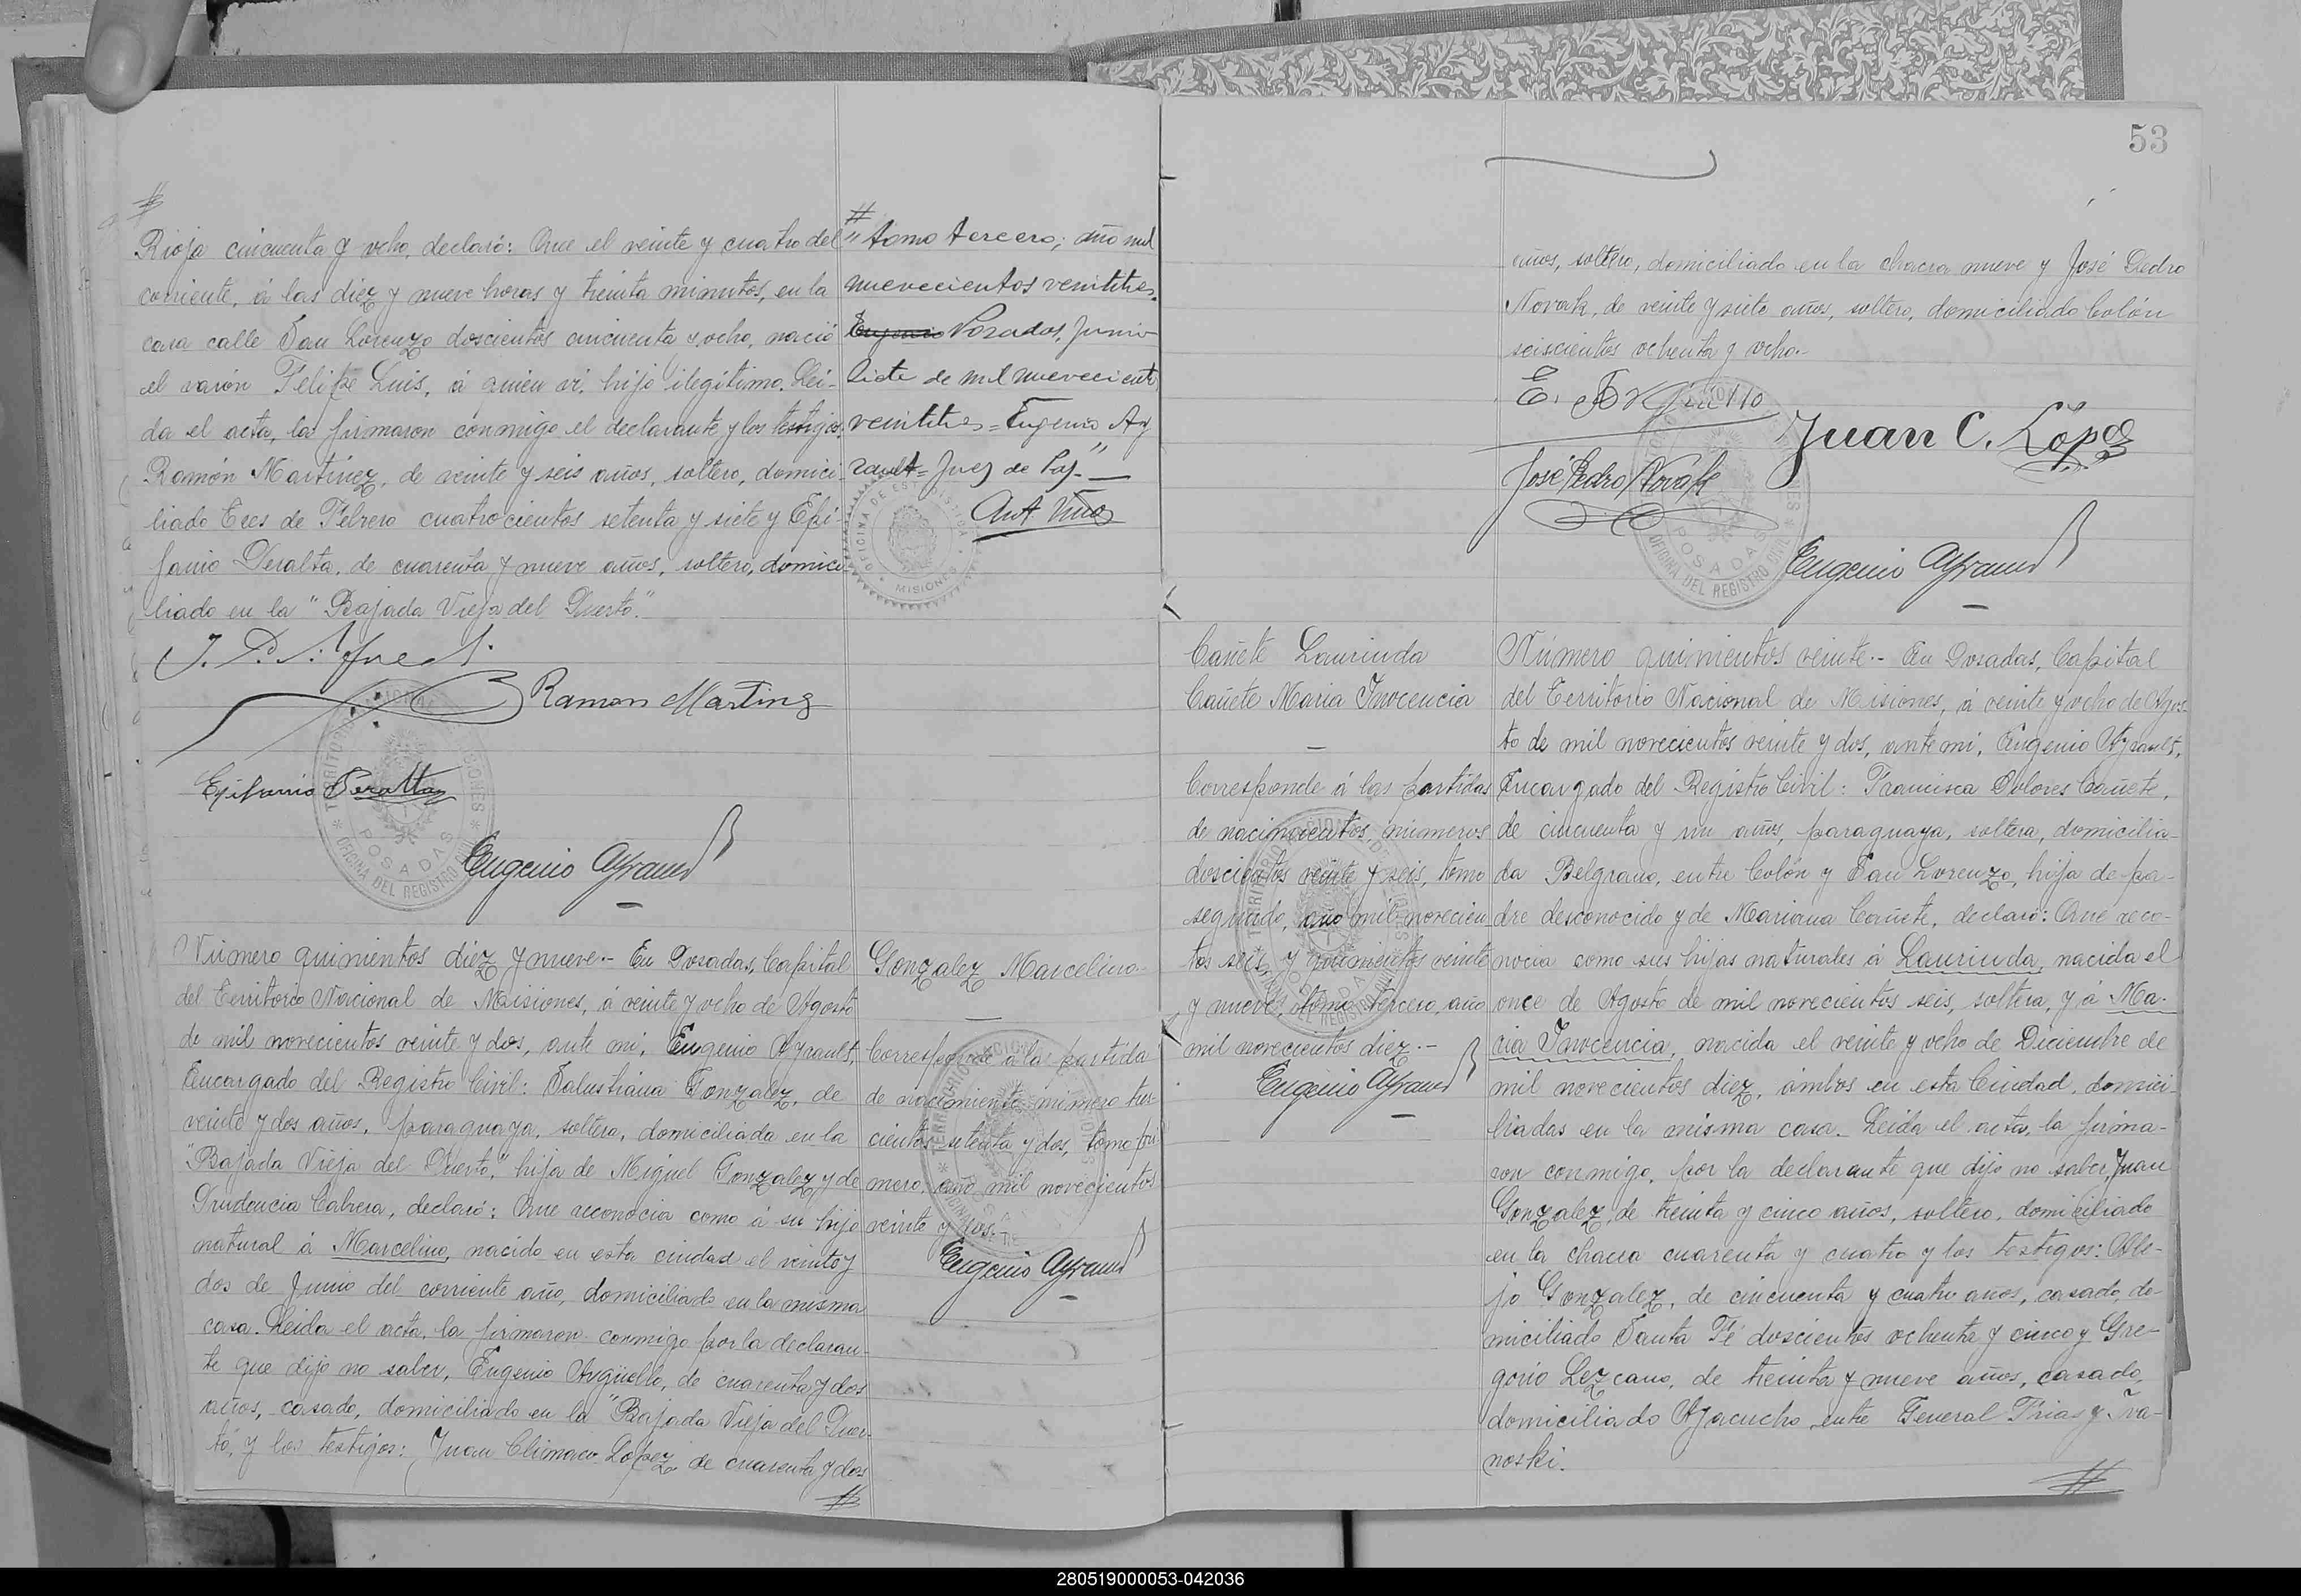 Rioja cincuenta y ocho, declaró: Que el veinte y cuatro del
corriente, á las diéz y nueve horas y treinta minutos, en la
casa calle San Lorenzo doscientos cincuenta y ocho, nació
el varón Felipe Luis, á quien ví, hijo ilegítimo. Leí-
da el acta, la firmaron conmigo el declarante y los testigos:
Ramón Martínez, de veinte y seis años, soltero, domici-
liado Tres de Febrero cuatrocientos setenta y siete y Epi-
fanio Peralta, de cuarenta y nueve años, soltero, domici-
liado en la "Bajada Vieja del Puerto."
Ramon Martinz
Epifanio Peralta
Eugenio Ayrault
Número quinientos diez y nueve.- En Posadas, Capital
del Territorio Nacional de Misiones, á veinte y ocho de Agosto
de mil novecientos veinte y dos, ante mí, Eugenio Ayrault,
Encargado del Registro Civil: Salustiana Gonzalez, de
veinte y dos años, paraguaya, soltera, domiciliada en la
"Bajada Vieja del Puerto," hija de Miguel Gonzalez y de
Prudencia Cabrera, declaró: Que reconocía como á su hijo
natural á Marcelino, nacido en esta ciudad el veinte y
dos de Junio del corriente año, domiciliado en la misma
casa. Leída el acta, la firmaron conmigo por la declaran-
te que dijo no saber, Eugenio Argüello, de cuarenta y dos
años, casado, domiciliado en la "Bajada Vieja del Puer-
to," y los testigos: Juan Clímaco López, de cuarenta y dos
#
"tomo tercero; año mil
nuevecientos veintitres.
Eugenio Posadas, Junio
Siete de mil nuevecient
veintitres = Eugenio Ay
rault = Juez de Paz."
Gonzalez Marcelino
Corresponde á la partida
de nacimiento número tres-
cientos setenta y dos, tomo pri
mero, año mil novecientos
veinte y dos.-
Eugenio Ayrault
53
años, soltero, domiciliado en la chacra nueve y José Pedro
Novak, de veinte y siete años, soltero, domiciliado Colón
seiscientos ochenta y ocho.-
Juan C. López
José Pedro Novak
Eugenio Ayrault
Cañete Laurinda
Cañete Maria Inocencia
Corresponde á las partidas
de nacimientos números
doscientos veinte y seis, tomo
segundo, año mil novecien
tos seis y quinientos veinte
y nueve, tomo tercero, año
mil novecientos diez.-
Eugenio Ayrault
Número quinientos veinte.- En Posadas, Capital
del Territorio Nacional de Misiones, á veinte y ocho de Agos-
to de mil novecientos veinte y dos, ante mí, Eugenio Ayrault,
Encargado del Registro Civil: Francisca Dolores Cañete,
de cincuenta y un años, paraguaya, soltera, domicilia-
da Belgrano, entre Colón y San Lorenzo, hija de pa-
dre desconocido y de Mariana Cañete, declaró: Que reco-
nocía como sus hijas naturales á Laurinda, nacida el
once de Agosto de mil novecientos seis, soltera, y á Ma-
ría Inocencia, nacida el veinte y ocho de Diciembre de
mil novecientos diez, ámbos en esta Ciudad, domici-
liadas en la misma casa. Leída el acta, la firma-
ron conmigo, por la declarante que dijo no saber, Juan
Gonzalez, de treinta y cinco años, soltero, domiciliado
en la chacra cuarenta y cuatro y los testigos: Ale-
jo Gonzalez, de cincuenta y cuatro años, casado, do-
miciliado Santa Fé doscientos ochenta y cinco y Gre-
gorio Lezcano, de treinta y nueve años, casado,
domiciliado Ayacucho, entre General Frias y Iva-
noski.
#
280519000053-042036